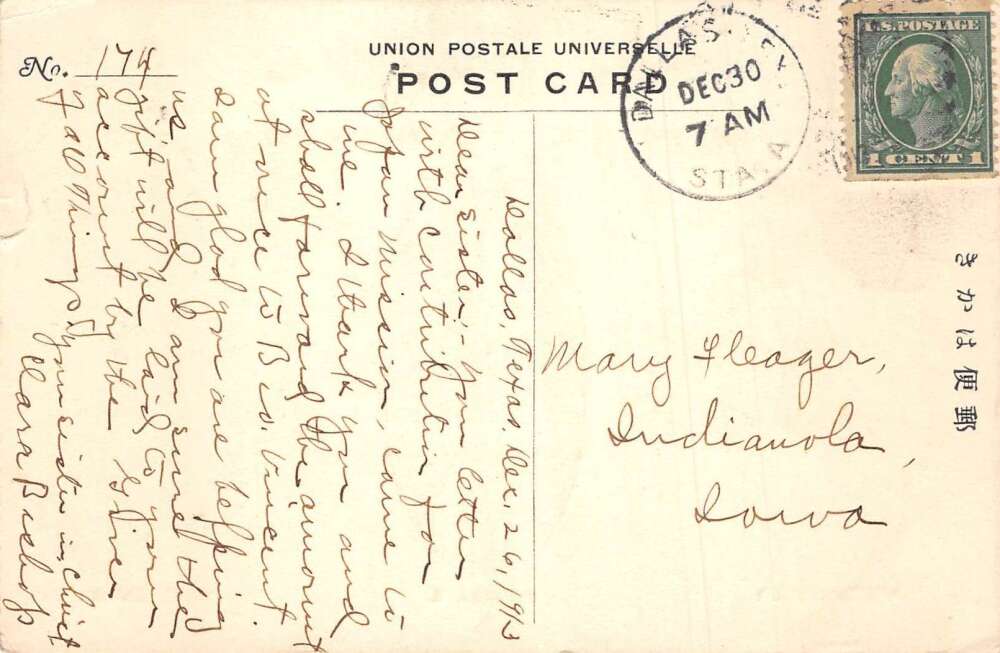 No. 174
UNION POSTALE UNIVERSELLE
POST CARD
DALLAS, TEX.
DEC 30
7 AM
STA. A
U.S. POSTAGE
1 CENT 1
きかは便郵
Dallas, Texas, Dec. 26, 1913
Dear Sister:- Your letter
with contribution for
Japan Mission, came to
me. I thank you and
shall forward the amount
at once to Bro. Vincent.
I am glad you are helping
us and I am sure the
gift will be laid to your
account by the Giver
of all Things,
Your sister in Christ
Clara Bishop
Mary Fleager,
Indianola,
Iowa